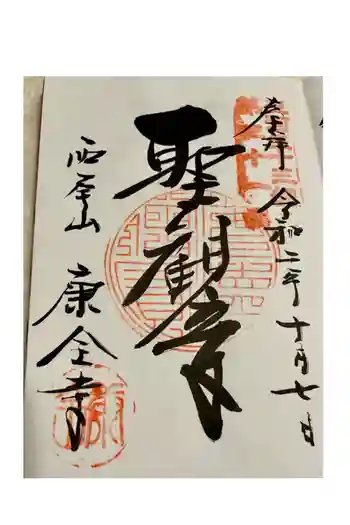 奉拝 令和二年十月七日
聖観音
西尾山 康全寺